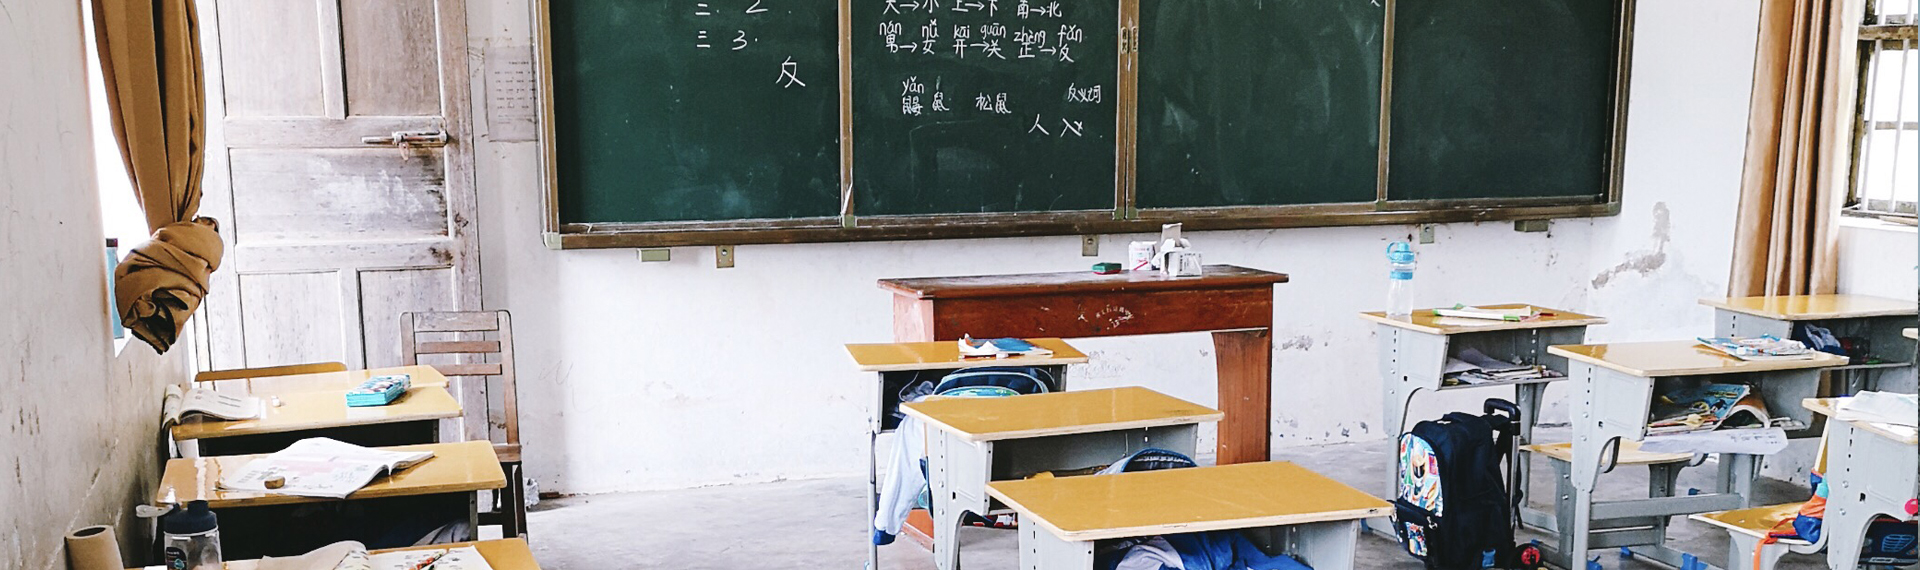 二. 2.
三 3.
反
大→小 上→下 南→北
nán nǚ kāi guān zhèng fǎn
男→女 开→关 正→反
yǎn
鼹鼠 松鼠 反义词
人 入